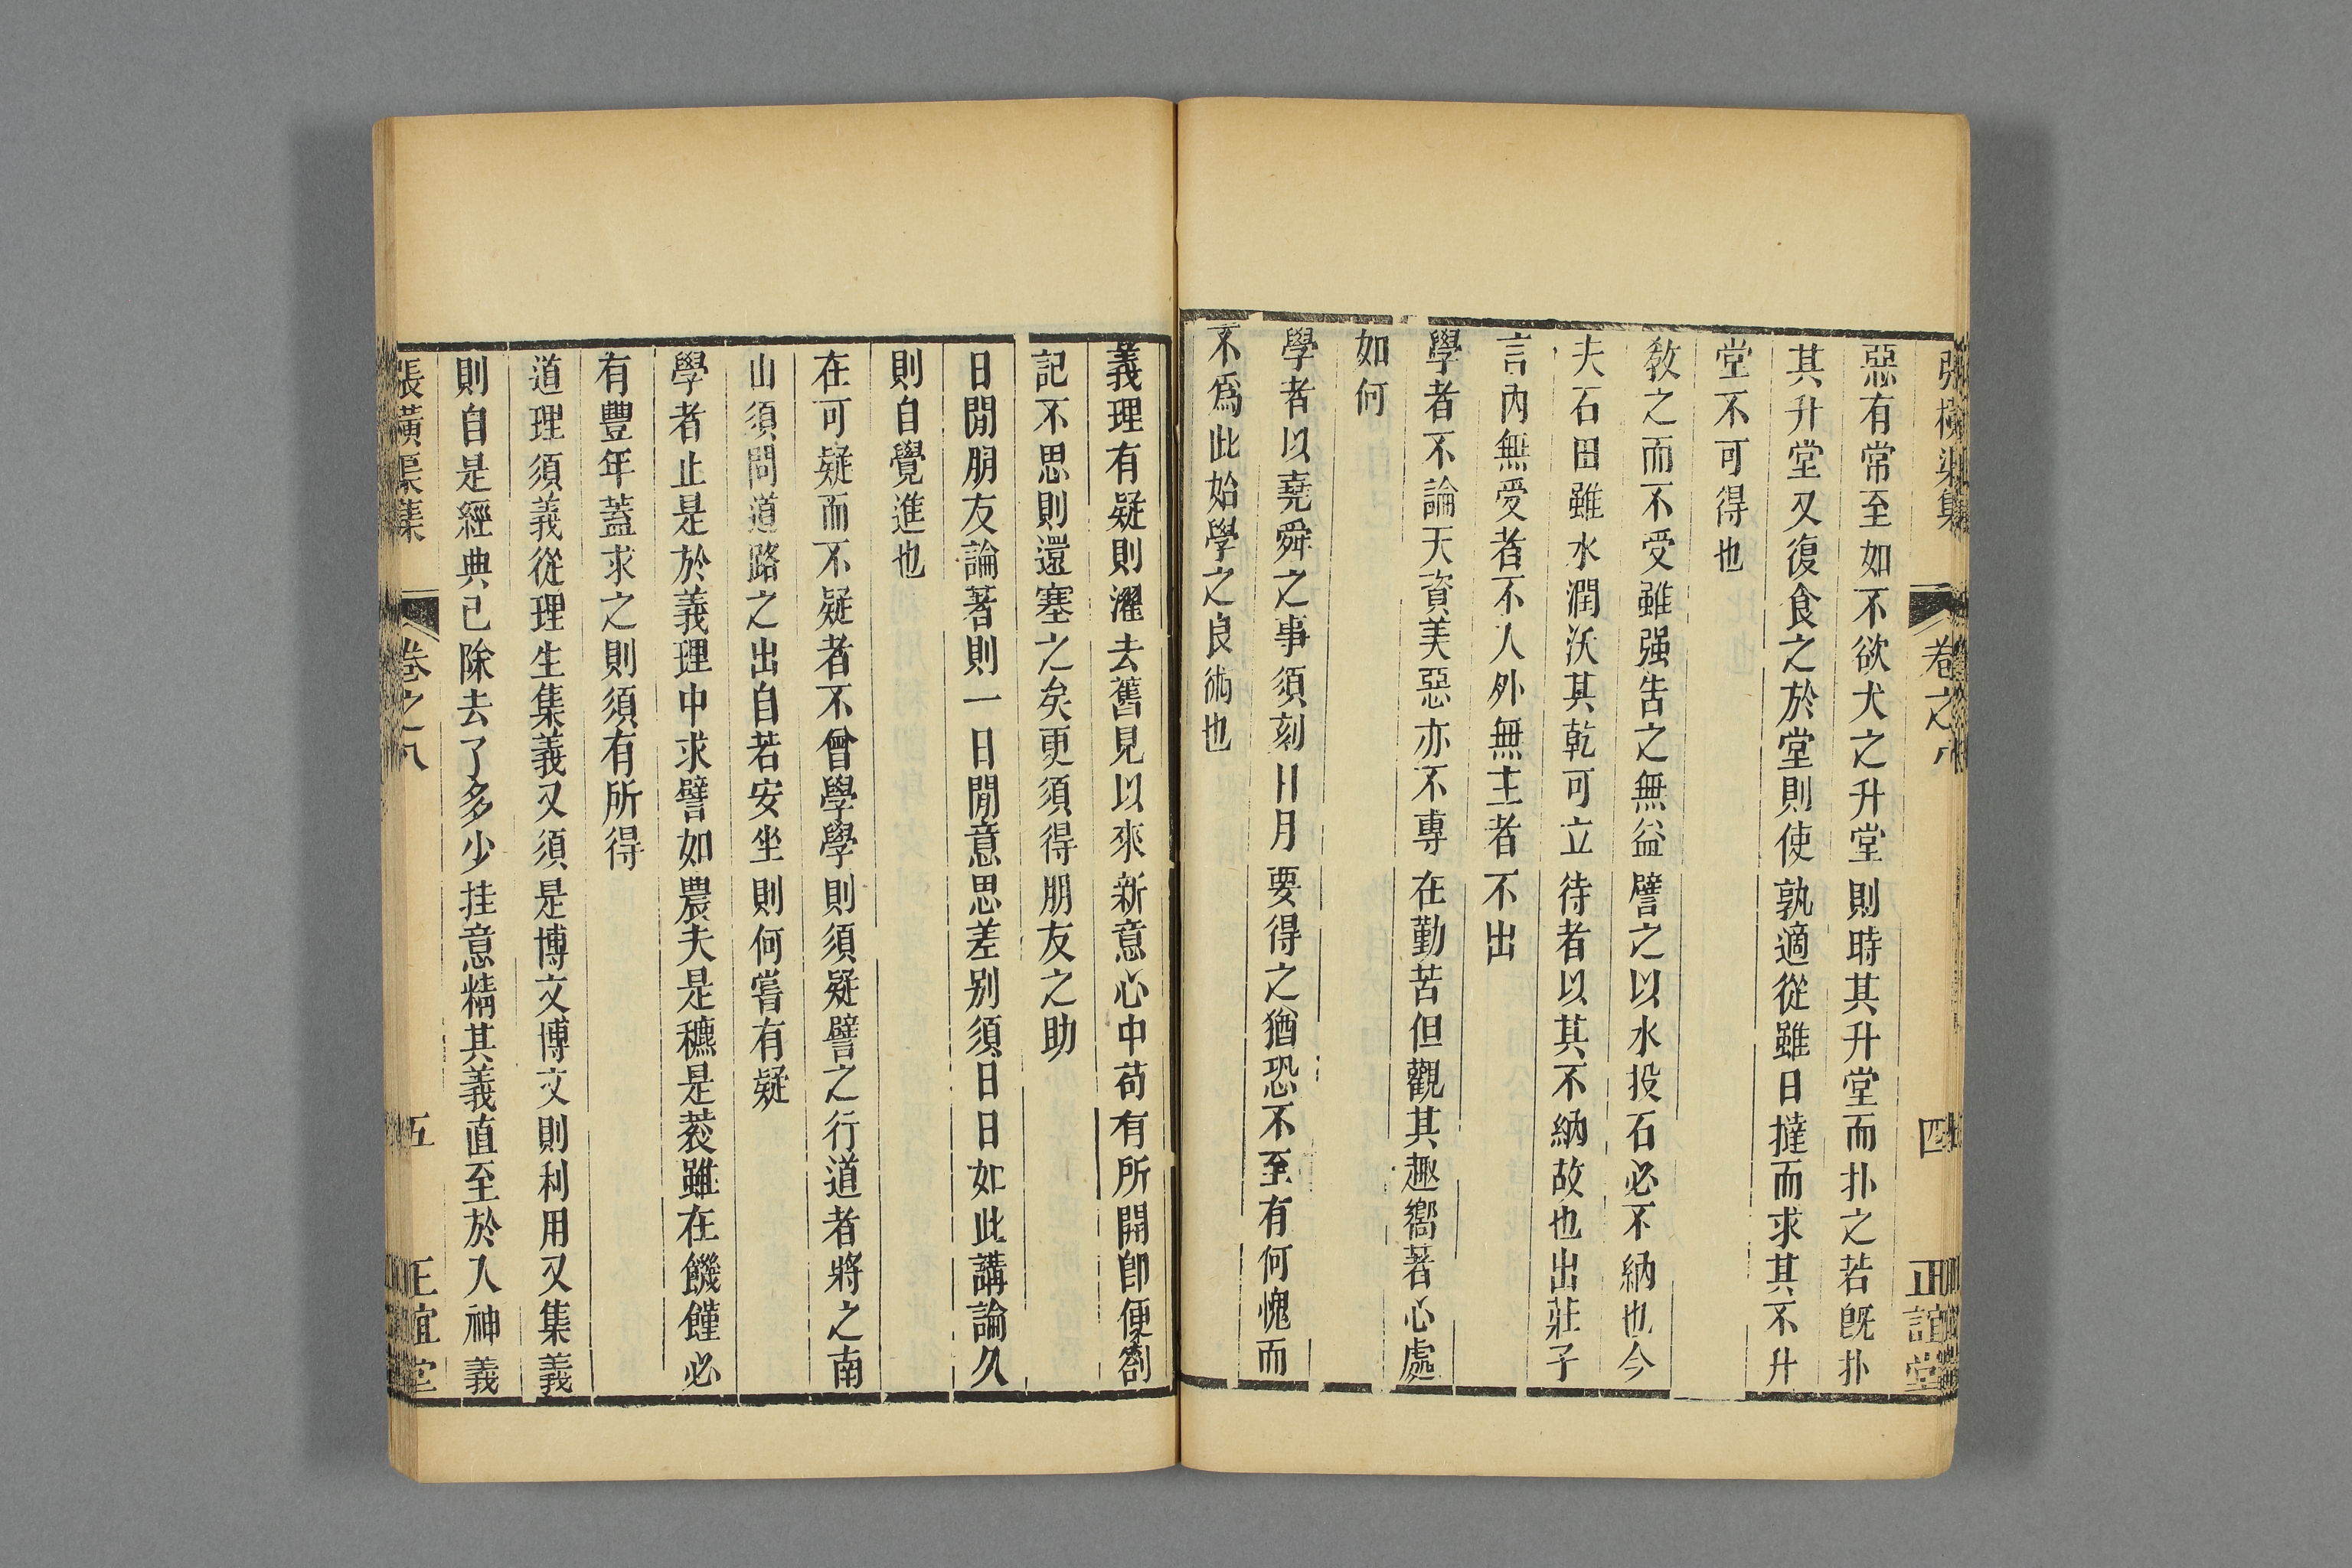 張橫渠集 卷之八 四 正誼堂
惡有常至如不欲犬之升堂則時其升堂而扑之若旣扑
其升堂又復食之於堂則使孰適從雖日撻而求其不升
堂不可得也
敎之而不受雖强告之無益譬之以水投石必不納也今
夫石田雖水潤沃其乾可立待者以其不納故也出莊子
言內無受者不入外無主者不出
學者不論天資美惡亦不專在勤苦但觀其趣嚮著心處
如何
學者以堯舜之事須刻日月要得之猶恐不至有何愧而
不爲此始學之良術也
義理有疑則濯去舊見以來新意心中苟有所開卽便劄
記不思則還塞之矣更須得朋友之助
日閒朋友論著則一日閒意思差别須日日如此講論久
則自覺進也
在可疑而不疑者不曾學學則須疑譬之行道者將之南
山須問道路之出自若安坐則何嘗有疑
學者止是於義理中求譬如農夫是穮是蓘雖在饑饉必
有豐年蓋求之則須有所得
道理須義從理生集義又須是博文博文則利用又集義
則自是經典已除去了多少挂意精其義直至於入神義
張橫渠集 卷之八 五 正誼堂